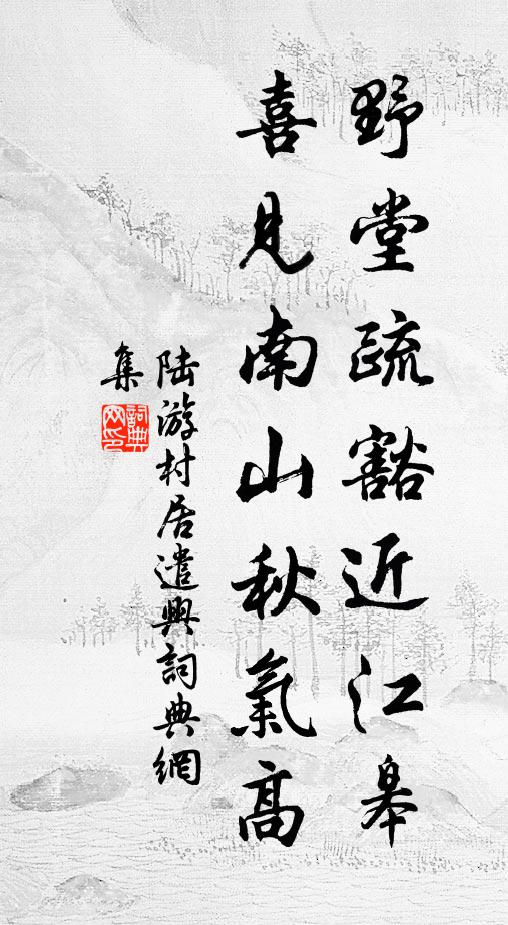 野堂疏豁近江皋
喜見南山秋氣高
陸游村居遣興詞典網
集
詞典
网印